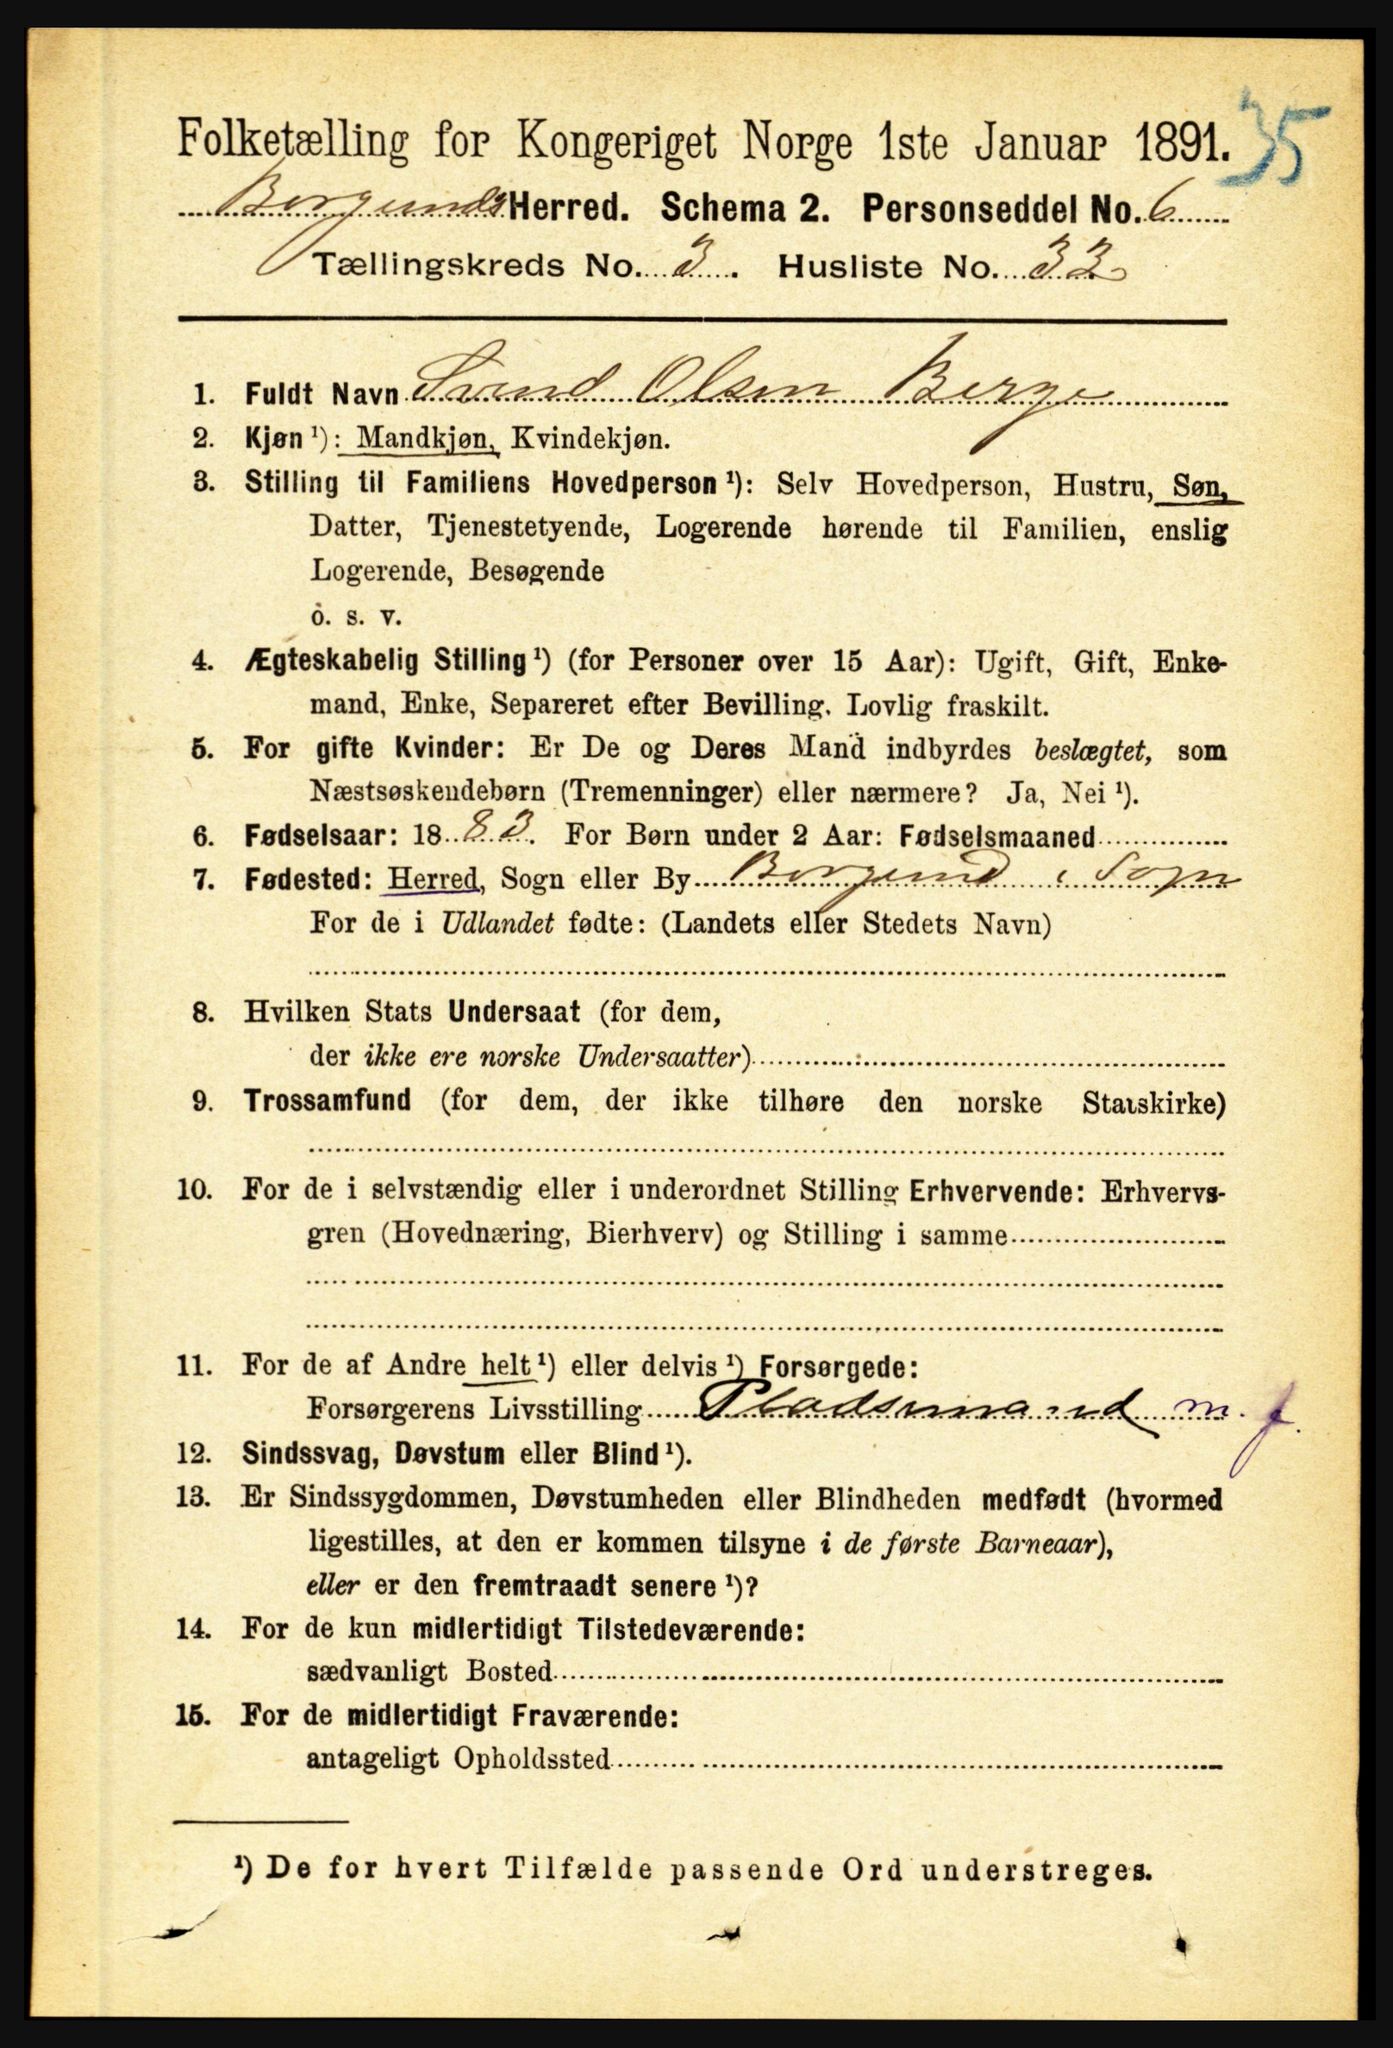 Folketælling for Kongeriget Norge 1ste Januar 1891. 35
Borgunds Herred. Schema 2. Personseddel No. 6
Tællingskreds No. 3. Husliste No. 33
1. Fuldt Navn Svend Olsen Berge
2. Kjøn¹): Mandkjøn, Kvindekjøn.
3. Stilling til Familiens Hovedperson¹): Selv Hovedperson, Hustru, Søn,
Datter, Tjenestetyende, Logerende hørende til Familien, enslig
Logerende, Besøgende
o. s. v.
4. Ægteskabelig Stilling¹) (for Personer over 15 Aar): Ugift, Gift, Enke-
mand, Enke, Separeret efter Bevilling. Lovlig fraskilt.
5. For gifte Kvinder: Er De og Deres Mand indbyrdes beslægtet, som
Næstsøskendebørn (Tremenninger) eller nærmere? Ja, Nei¹).
6. Fødselsaar: 1883. For Børn under 2 Aar: Fødselsmaaned
7. Fødested: Herred, Sogn eller By Borgund i Sogn
For de i Udlandet fødte: (Landets eller Stedets Navn)
8. Hvilken Stats Undersaat (for dem,
der ikke ere norske Undersaatter)
9. Trossamfund (for dem, der ikke tilhøre den norske Statskirke)
10. For de i selvstændig eller i underordnet Stilling Erhvervende: Erhvervs-
gren (Hovednæring, Bierhverv) og Stilling i samme
11. For de af Andre helt¹) eller delvis¹) Forsørgede:
Forsørgerens Livsstilling Pladsmand m. f.
12. Sindssvag, Døvstum eller Blind¹).
13. Er Sindssygdommen, Døvstumheden eller Blindheden medfødt (hvormed
ligestilles, at den er kommen tilsyne i de første Barneaar),
eller er den fremtraadt senere¹)?
14. For de kun midlertidigt Tilstedeværende:
sædvanligt Bosted
15. For de midlertidigt Fraværende:
antageligt Opholdssted
¹) De for hvert Tilfælde passende Ord understreges.